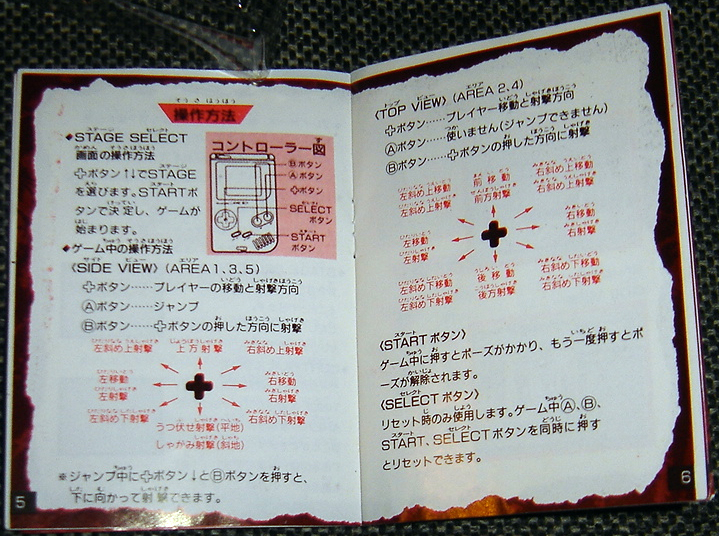 操作方法
◆STAGE SELECT
画面の操作方法
✚ボタン↑↓でSTAGE
を選びます。STARTボ
タンで決定し、ゲームが
始まります。
コントローラー図
Ⓑボタン
Ⓐボタン
✚ボタン
SELECT
ボタン
START
ボタン
◆ゲーム中の操作方法
〈SIDE VIEW〉(AREA1、3、5)
✚ボタン……プレイヤーの移動と射撃方向
Ⓐボタン……ジャンプ
Ⓑボタン……✚ボタンの押した方向に射撃
左斜め上射撃 上方射撃 右斜め上射撃
左移動 右移動
左射撃 右射撃
左斜め下射撃 うつ伏せ射撃(平地) 右斜め下射撃
しゃがみ射撃(斜地)
※ジャンプ中に✚ボタン↓とⒷボタンを押すと、
下に向かって射撃できます。
5
〈TOP VIEW〉(AREA 2、4)
✚ボタン……プレイヤー移動と射撃方向
Ⓐボタン……使いません(ジャンプできません)
Ⓑボタン……✚ボタンの押した方向に射撃
左斜め上移動 前移動 右斜め上移動
左斜め上射撃 前方射撃 右斜め上射撃
左移動 右移動
左射撃 右射撃
左斜め下移動 後移動 右斜め下移動
左斜め下射撃 後方射撃 右斜め下射撃
〈STARTボタン〉
ゲーム中に押すとポーズがかかり、もう一度押すとポ
ーズが解除されます。
〈SELECTボタン〉
リセット時のみ使用します。ゲーム中Ⓐ、Ⓑ、
START、SELECTボタンを同時に押す
とリセットできます。
6